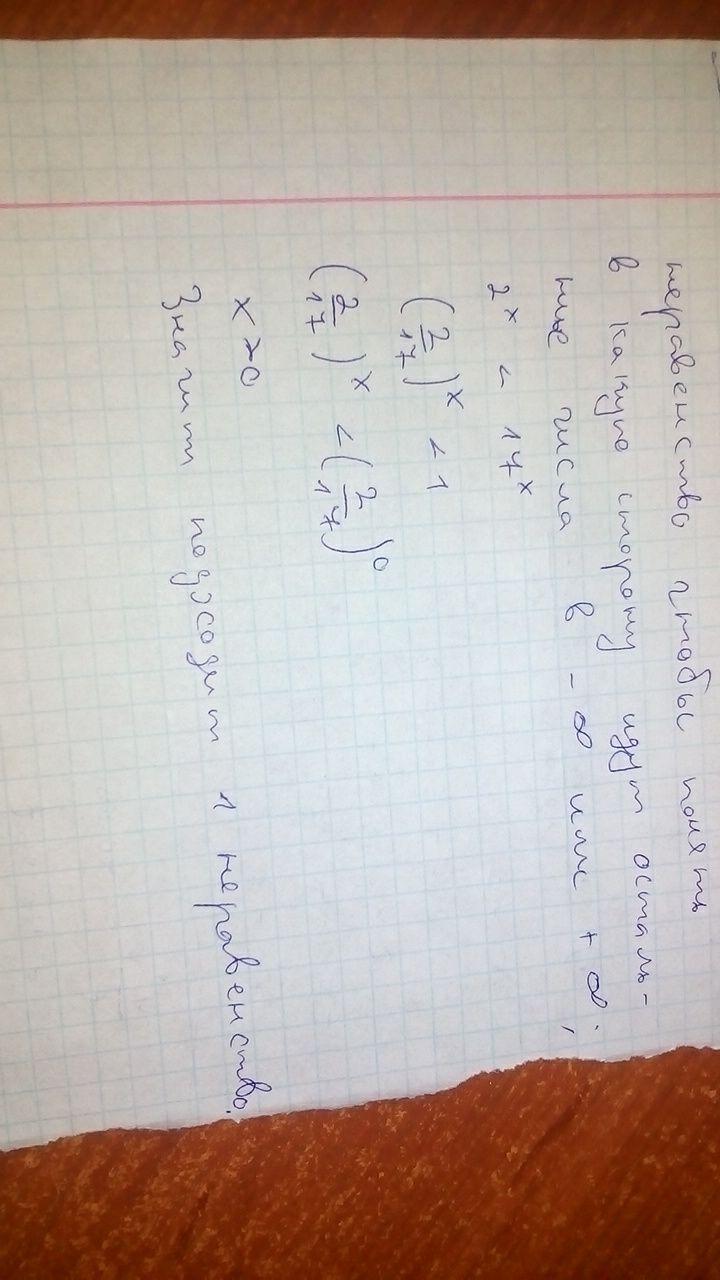 неравенство чтобы понять
в какую сторону идут осталь-
ные числа в -∞ или +∞;
2^x < 17^x
(2/17)^x < 1
(2/17)^x < (2/17)^0
x > 0
Значит подходит 1 неравенство.